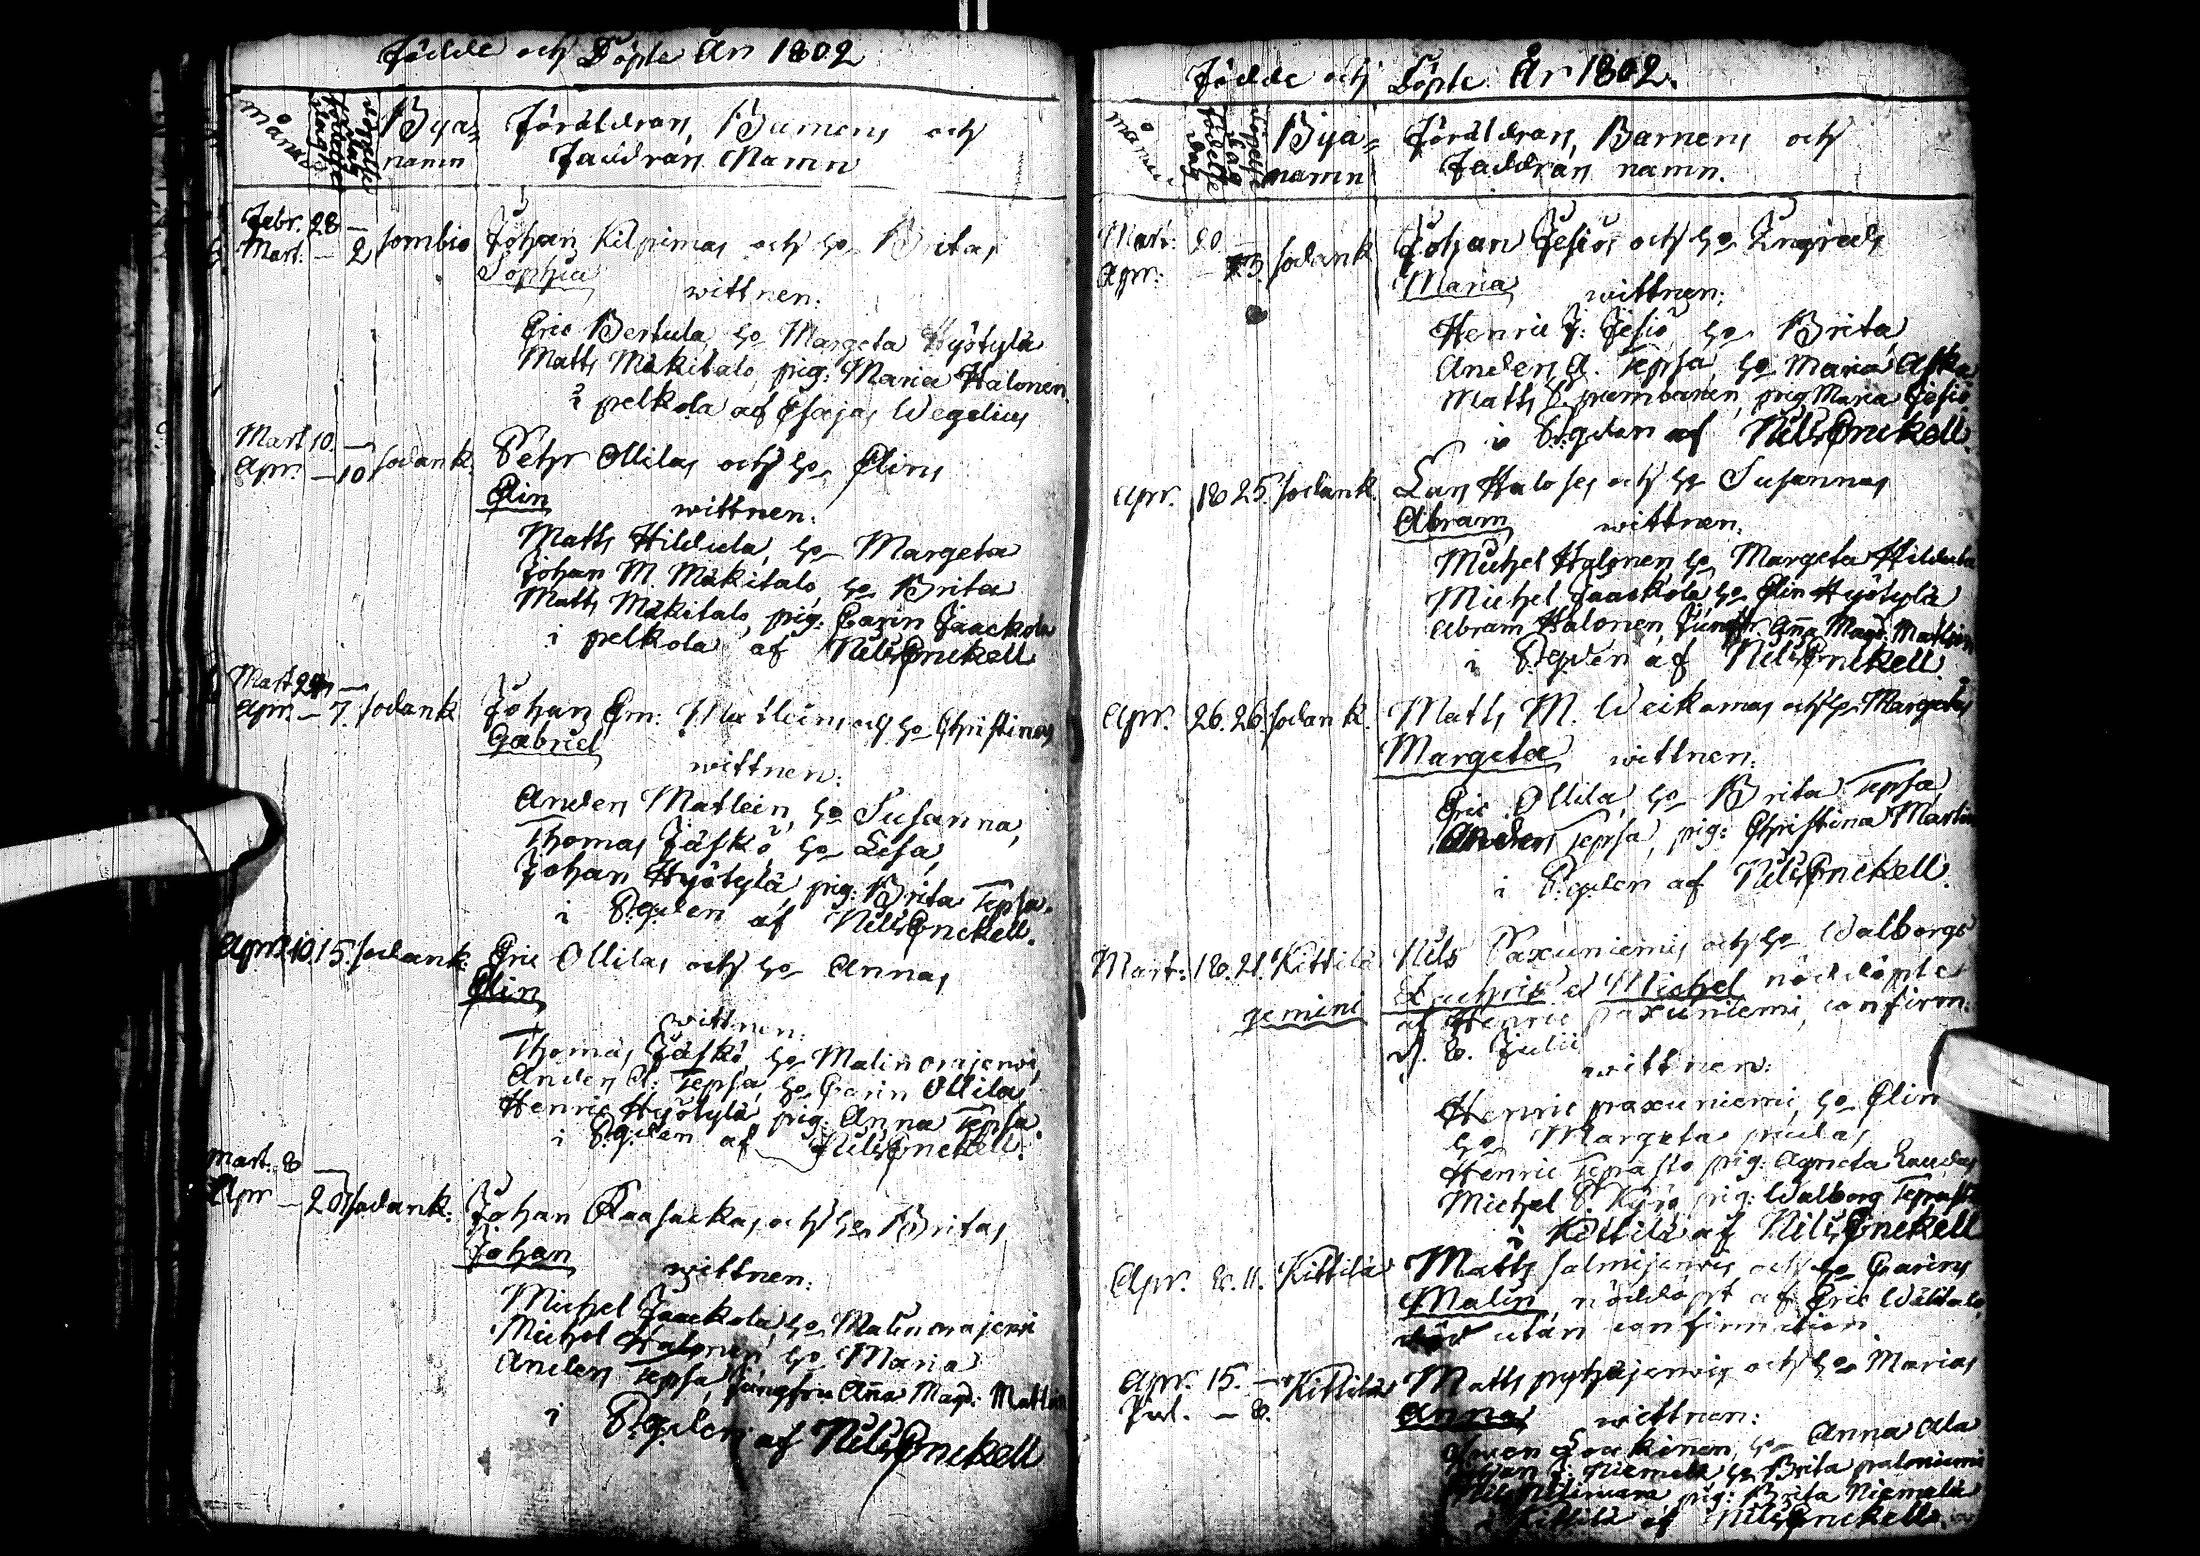 Födde och Döpte År 1802
månad födelse dag döpelse dag Bya= namn
Föräldrars, Barnens och
Faddrars Namn
Febr. 28 —
Mart. — 2 Sombio Johan Kilpimas och h:o Britas
Sophia
wittnen:
Eric Bertula, h:o Margeta Hyötylä
Matts Mäkitalo, pig: Maria Halonen
i pelkola af Esajas Wegelius
Mart 10. —
Apr. — 10 Sodank. Petr Ollilas och h:o Elins
Elin
wittnen:
Matts Hiltula, h:o Margeta
Johan M. Mäkitalo, h:o Brita
Matts Mäkitalo, pig: Carin Jaackola
i pelkola af Nils Enckell
Mart —
Apr. — 7. Sodank Johan Em: Matleins och h:o Christinas
Gabriel
wittnen:
Anders Matlein, h:o Susanna,
Thomas Jäskö h:o Lisa,
Johan Hyötylä, pig: Brita Tepsa.
i P.gden af Nils Enckell.
Apr. 10. 15. Sodank: Eric Ollilas och h:o Annas
Elin
wittnen:
Thomas Jäskö, h:o Malin orajerwi,
Anders A: Tepsa, h:o Carin Ollila,
Henric Hyötylä, pig: Anna Tepsa.
i P.gden af Nils Enckell.
Mart. 8 —
Apr — 20 Sodank: Johan Raasackas, och h:o Britas
Johan
wittnen:
Michel Jaackola, h:o Malin orajerwi
Michel Halonen, h:o Maria
Anders Tepsa, Jungfru Anna Magd: Matlein
i P.gden af Nils Enckell
Födde och Döpte År 1802.
månad födelse dag döpelse dag Bya= namn
Föräldrars, Barnens och
Faddrars namn.
Mart: 20 —
Apr: — 3. Sodank Johan Jesiös och h:o Ingrids
Maria wittnen:
Henric J: Jesiö, h:o Brita,
Anders A. Tepsa, h:o Maria Aska
Matts P. pumbanen, pig Maria Jesiö.
i P.gden af Nils Enckell.
Apr. 18 25. Sodank. Lars Haloses och h:o Susannas
Abram wittnen.
Michel Halonen h:o Margeta Hiltula
Michel Jaackola h:o Elin Hyötylä
Abram Halonen, Jungfr. Anna Magd: Matlein
i P.gden af Nils Enckell.
Apr. 26. 26. Sodank. Matts M. Weikamas och h:o Margetas
Margeta wittnen:
Eric Ollila, h:o Brita Tepsa,
Anders Tepsa, pig: Christina Martin
i P.gden af Nils Enckell.
Mart: 18. 21. Kittilä Nils Paxuniemis och h:o Walborgs
gemini et Michel nöddöpte
af Henric paxuniemi, confirm.
d. 8. Julii
wittnen:
Henric paxuniemi, h:o Elin
h:o Margeta
Henric Tepasto pig: Agneta
Michel P. Kyrö pig: Walborg Tepasto
i Kittilä af Nils Enckell
Apr. 8. 11. Kittilä Matts Salmijerwis och h:o Carins
Malin, nöddöpt af Eric Wälitalo,
död utan confirmation.
Apr. 15. — Kittilä Matts pyhäjerwis och h:o Marias
Jul. — 8.
Anna wittnen:
h:o Anna Ala
Johan J: Niemelä h:o Brita paloniemi
Nils pig: Brita Niemelä
i Kittilä af Nils Enckell.